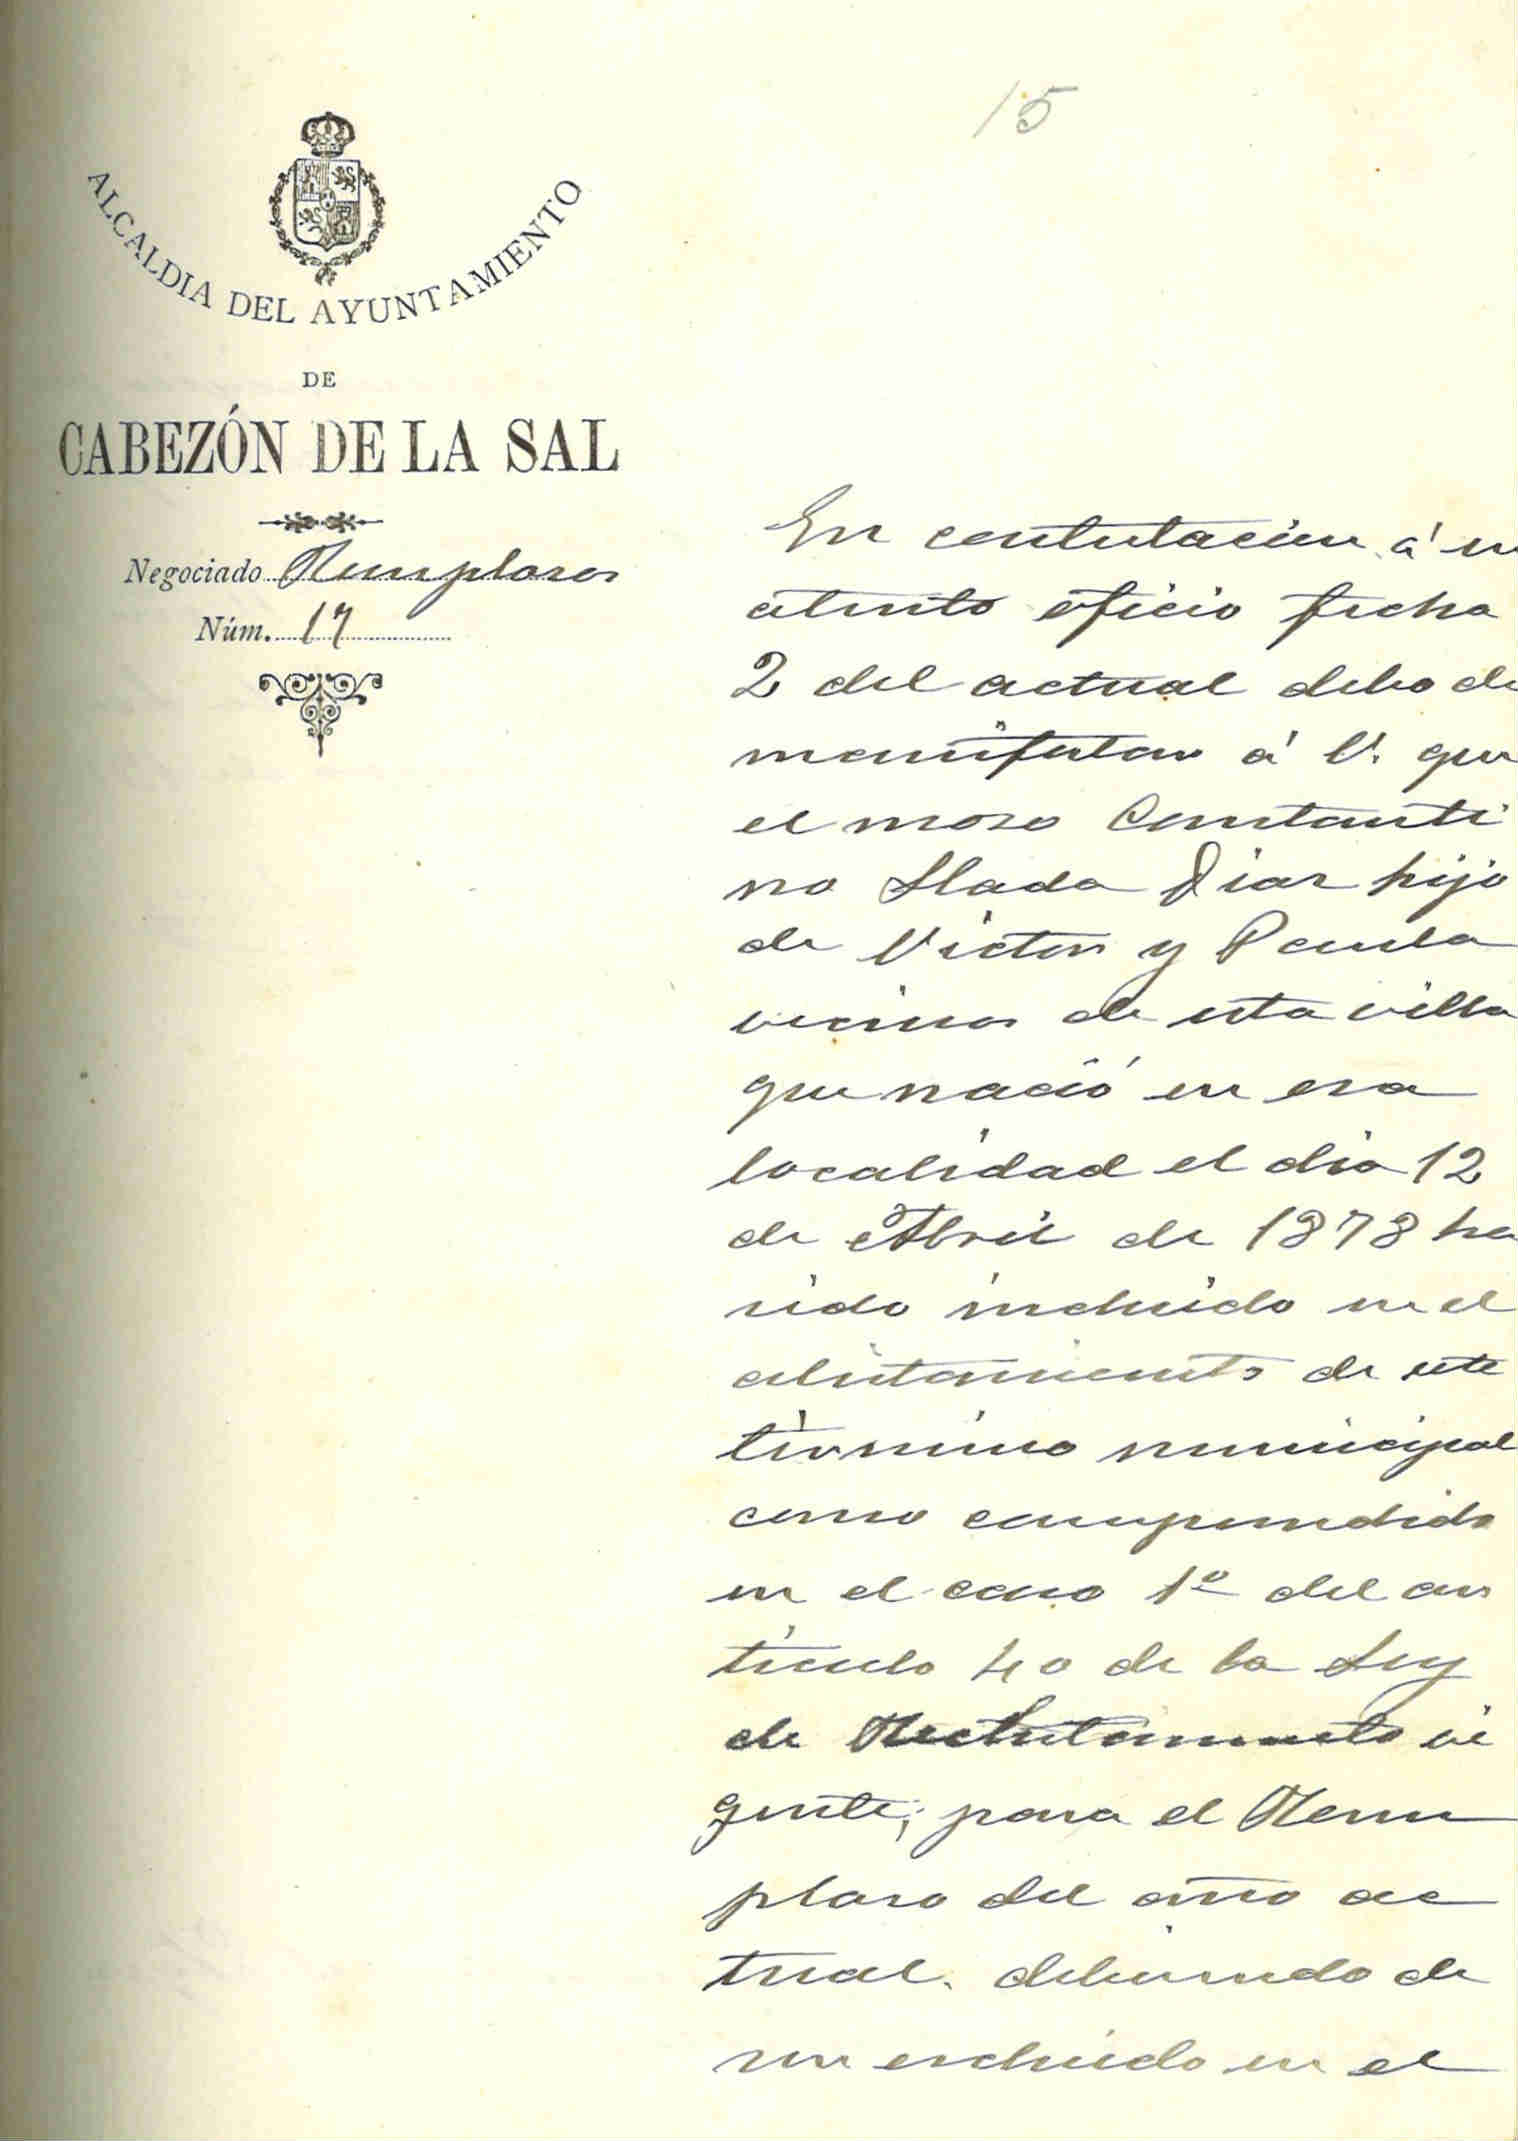 15
ALCALDIA DEL AYUNTAMIENTO
DE
CABEZÓN DE LA SAL
Negociado Remplasos
Núm. 17
En contestacion á su
atento oficio fecha
2 del actual debo de
manifestar á V. que
el moso Constanti
no Llada Diaz hijo
de Victor y Paula
vecinos de esta villa
que nació en esa
localidad el dia 12
de Abril de 1878 ha
sido incluido en el
alistamiento de este
término municipal
como comprendido
en el caso 1º del ar
ticulo 40 de la Ley
de Reclutamiento vi
gente; para el Rem
plaso del año ac
tual. debiendo de
ser escluido en el